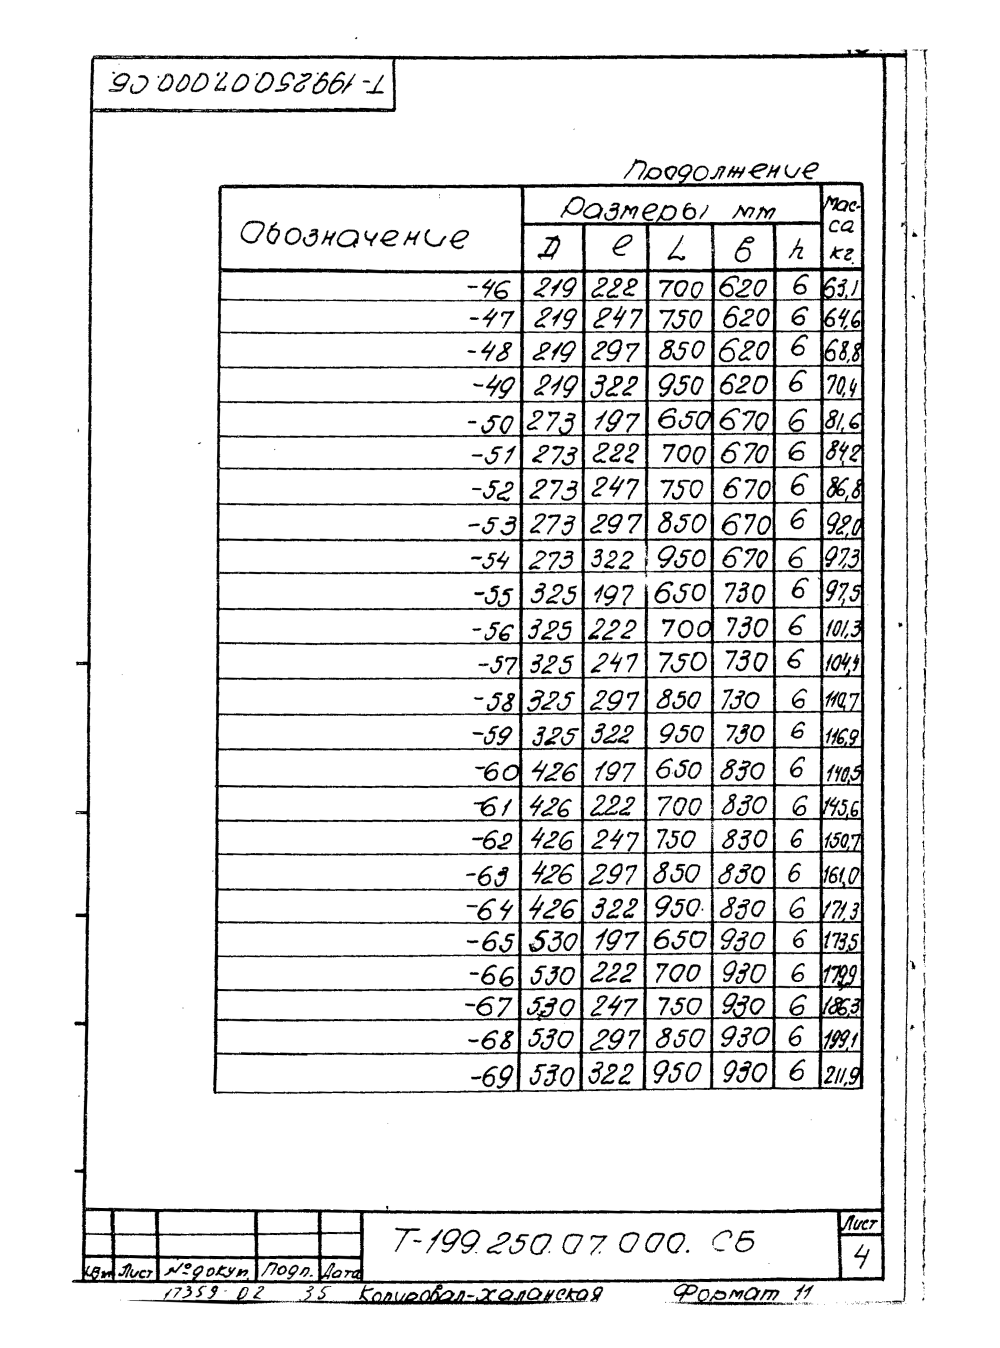 Т-199.250.07.000.СБ
Продолжение
Обозначение Размеры мм Мас-са кг.
Д ℓ L б h
-46 219 222 700 620 6 63,1
-47 219 247 750 620 6 64,6
-48 219 297 850 620 6 68,8
-49 219 322 950 620 6 70,4
-50 273 197 650 670 6 81,6
-51 273 222 700 670 6 84,2
-52 273 247 750 670 6 86,8
-53 273 297 850 670 6 92,0
-54 273 322 950 670 6 97,3
-55 325 197 650 730 6 97,5
-56 325 222 700 730 6 101,3
-57 325 247 750 730 6 104,4
-58 325 297 850 730 6 110,7
-59 325 322 950 730 6 116,9
-60 426 197 650 830 6 140,5
-61 426 222 700 830 6 145,6
-62 426 247 750 830 6 150,7
-63 426 297 850 830 6 161,0
-64 426 322 950 830 6 171,3
-65 530 197 650 930 6 173,5
-66 530 222 700 930 6 179,9
-67 530 247 750 930 6 186,3
-68 530 297 850 930 6 199,1
-69 530 322 950 930 6 211,9
Т-199.250.07.000. СБ
Лист
4
Изм Лист № докум. Подп. Дата
17359-02 35 Копировал-Халанская Формат 11